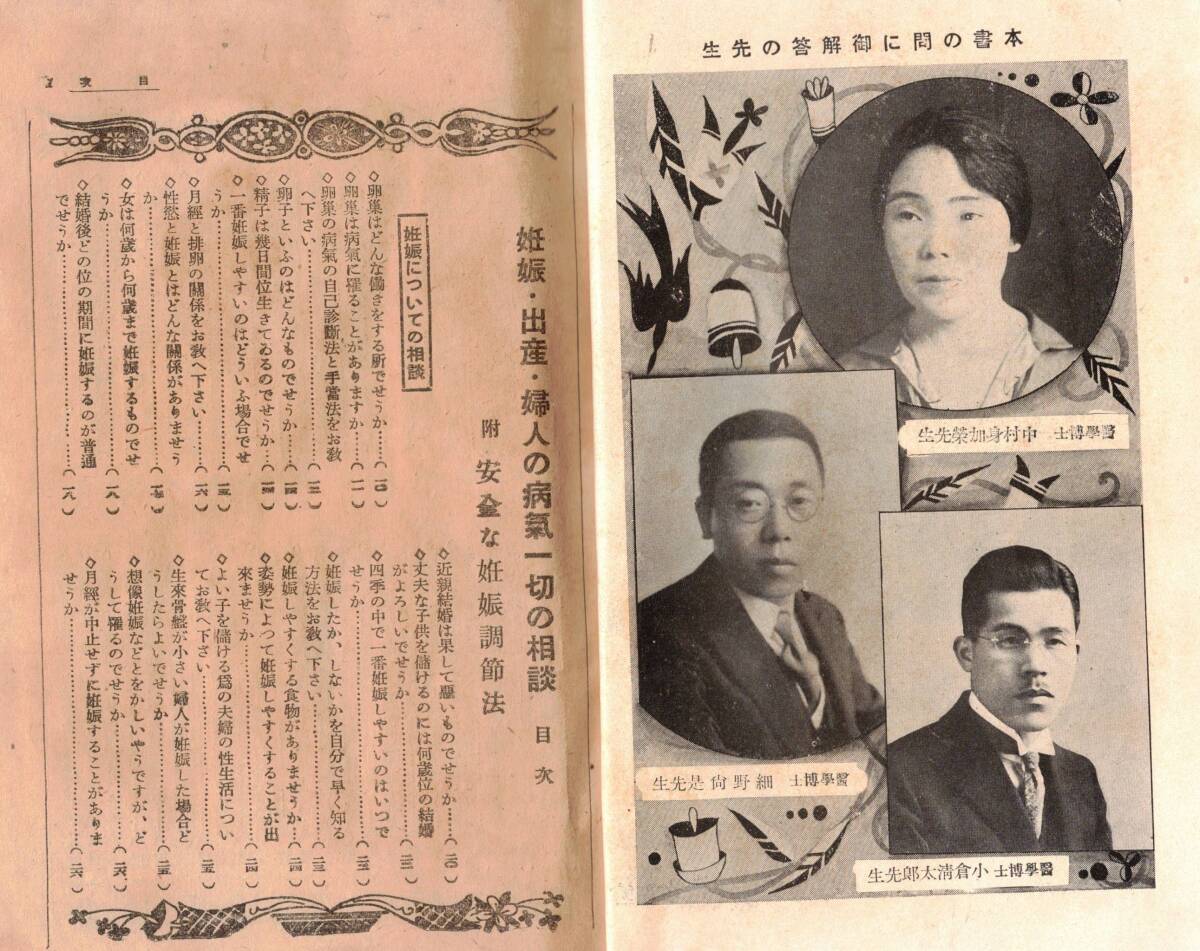 本書の問に御解答の先生
醫學博士 中村身加榮先生
醫學博士 細野尙是先生
醫學博士 小倉淸太郞先生
目次 1
妊娠・出産・婦人の病氣一切の相談 目次
附 安全な妊娠調節法
妊娠についての相談
◇卵巣はどんな働きをする所でせうか……(一〇)
◇卵巣は病氣に罹ることがありますか……(一一)
◇卵巣の病氣の自己診斷法と手當法をお敎
へ下さい……(一三)
◇卵子といふのはどんなものでせうか……(一四)
◇精子は幾日間位生きてゐるのでせうか……(一四)
◇一番妊娠しやすいのはどういふ場合でせ
うか……(一五)
◇月經と排卵の關係をお敎へ下さい……(一六)
◇性慾と妊娠とはどんな關係がありませう
か……(一七)
◇女は何歲から何歲まで妊娠するものでせ
うか……(一八)
◇結婚後どの位の期間に妊娠するのが普通
でせうか……(一八)
◇近親結婚は果して惡いものでせうか……(二〇)
◇丈夫な子供を儲けるのには何歲位の結婚
がよろしいでせうか……(二二)
◇四季の中で一番妊娠しやすいのはいつで
せうか……(二二)
◇妊娠したか、しないかを自分で早く知る
方法をお敎へ下さい……(二三)
◇妊娠しやすくする食物がありませうか……(二四)
◇姿勢によつて妊娠しやすくすることが出
來ませうか……(二四)
◇よい子を儲ける爲の夫婦の性生活につい
てお敎へ下さい……(二五)
◇生來骨盤が小さい婦人が妊娠した場合ど
うしたらよいでせうか……(二五)
◇想像妊娠などとをかしいやうですが、ど
うして罹るのでせうか……(二六)
◇月經が中止せずに妊娠することがありま
せうか……(二六)